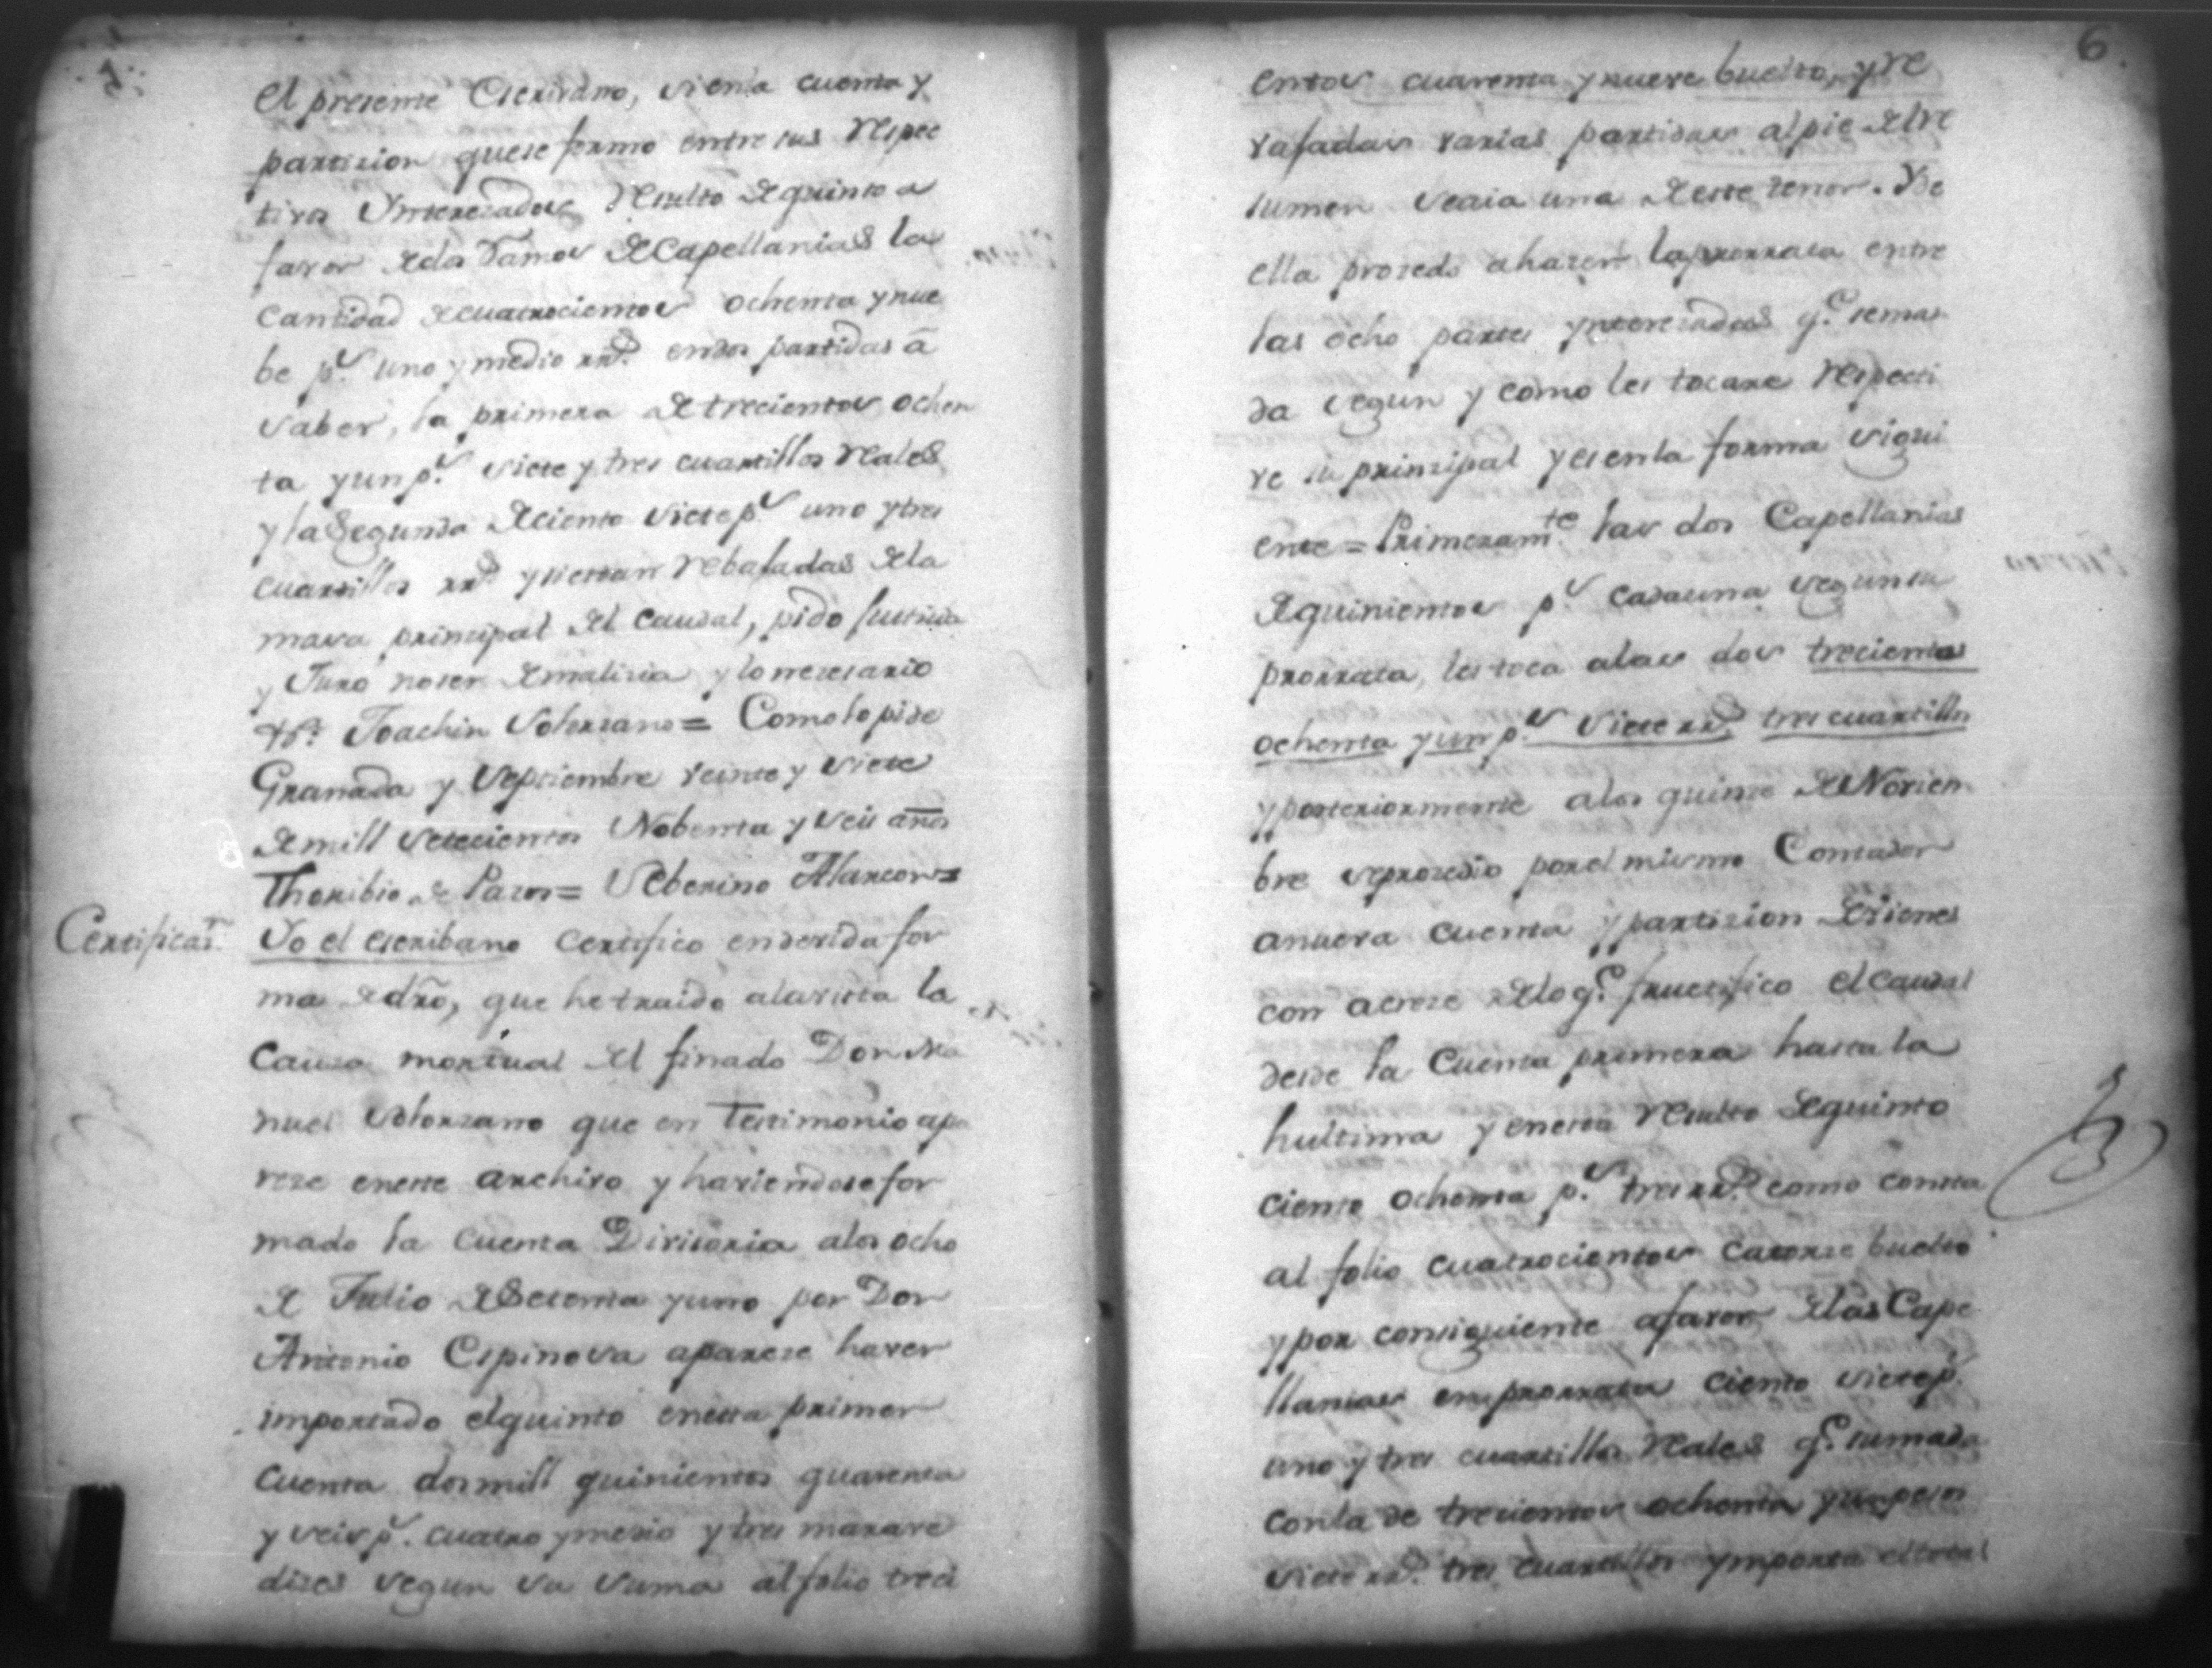 el presente Escrivano, si en la cuenta y
partizion que se formo entre sus respec
tivos Ynterezados resulto de quinto a
favor de los Ramos de Capellanias la
cantidad de cuatrocientos ochenta y nue
be p.s uno y medio rr.s en dos partidas â
saber, la primera de trecientos ochen
ta y un p.s siete y tres cuartillos reales
y la Segunda de ciento siete p.s uno y tres
cuartillos rr.s y si estan rebajadas de la
masa principal del caudal, pido justicia
y Juro no ser de malicia y lo nezesario
Joachin Solorzano = Como lo pide
Granada y Septiembre veinte y siete
de mill setecientos Nobenta y seis años
Thoribio de Pazos = Seberino Alarcon =
Certificaz.n
Yo el escribano certifico en devida for
ma de dro, que he traido a la vista la
Causa mortual del finado Don Ma
nuel Solorzano que en Testimonio apa
reze en este archivo y haviendose for
mado la cuenta Divisoria a los ocho
de Julio de Setenta y uno por Don
Antonio Espinosa apareze haver
importado el quinto en esta primer
cuenta dos mill quinientos quarenta
y seis p.s cuatro y medio y tres marave
dizes segun su suma al folio treci
6
entos cuarenta y nueve buelto, y re
vajadas varias partidas al pie del re
sumen se caia una de este tenor. Y de
ella prozedo a hazer la prorrata entre
las ocho partes ynterezadas q.e se man
da segun y como les tocare respecti
ve su prinzipal y es en la forma sigui
ente = Primeram.te las dos Capellanias
de quinientos p.s cada una segun su
prorrata, les toca a las dos trecientos
ochenta y un p.s siete rr.s tres cuartillos
y posteriormente a los quinze de Noviem
bre se prozedio por el mismo Contador
a nueva cuenta y partizion de vienes
con acreze de lo q.e fructifico el caudal
desde la cuenta primera hasta la
hultima y en esta resulto de quinto
ciento ochenta p.s tres rr.s como consta
al folio cuatrocientos catorze buelto
y por consiguiente a favor de las Cape
llanias en prorrata ciento siete p.s
uno y tres cuartillos reales q.e sumada
con la de trecientos ochenta y un pesos
siete rr.s tres cuartillos ymporta el total